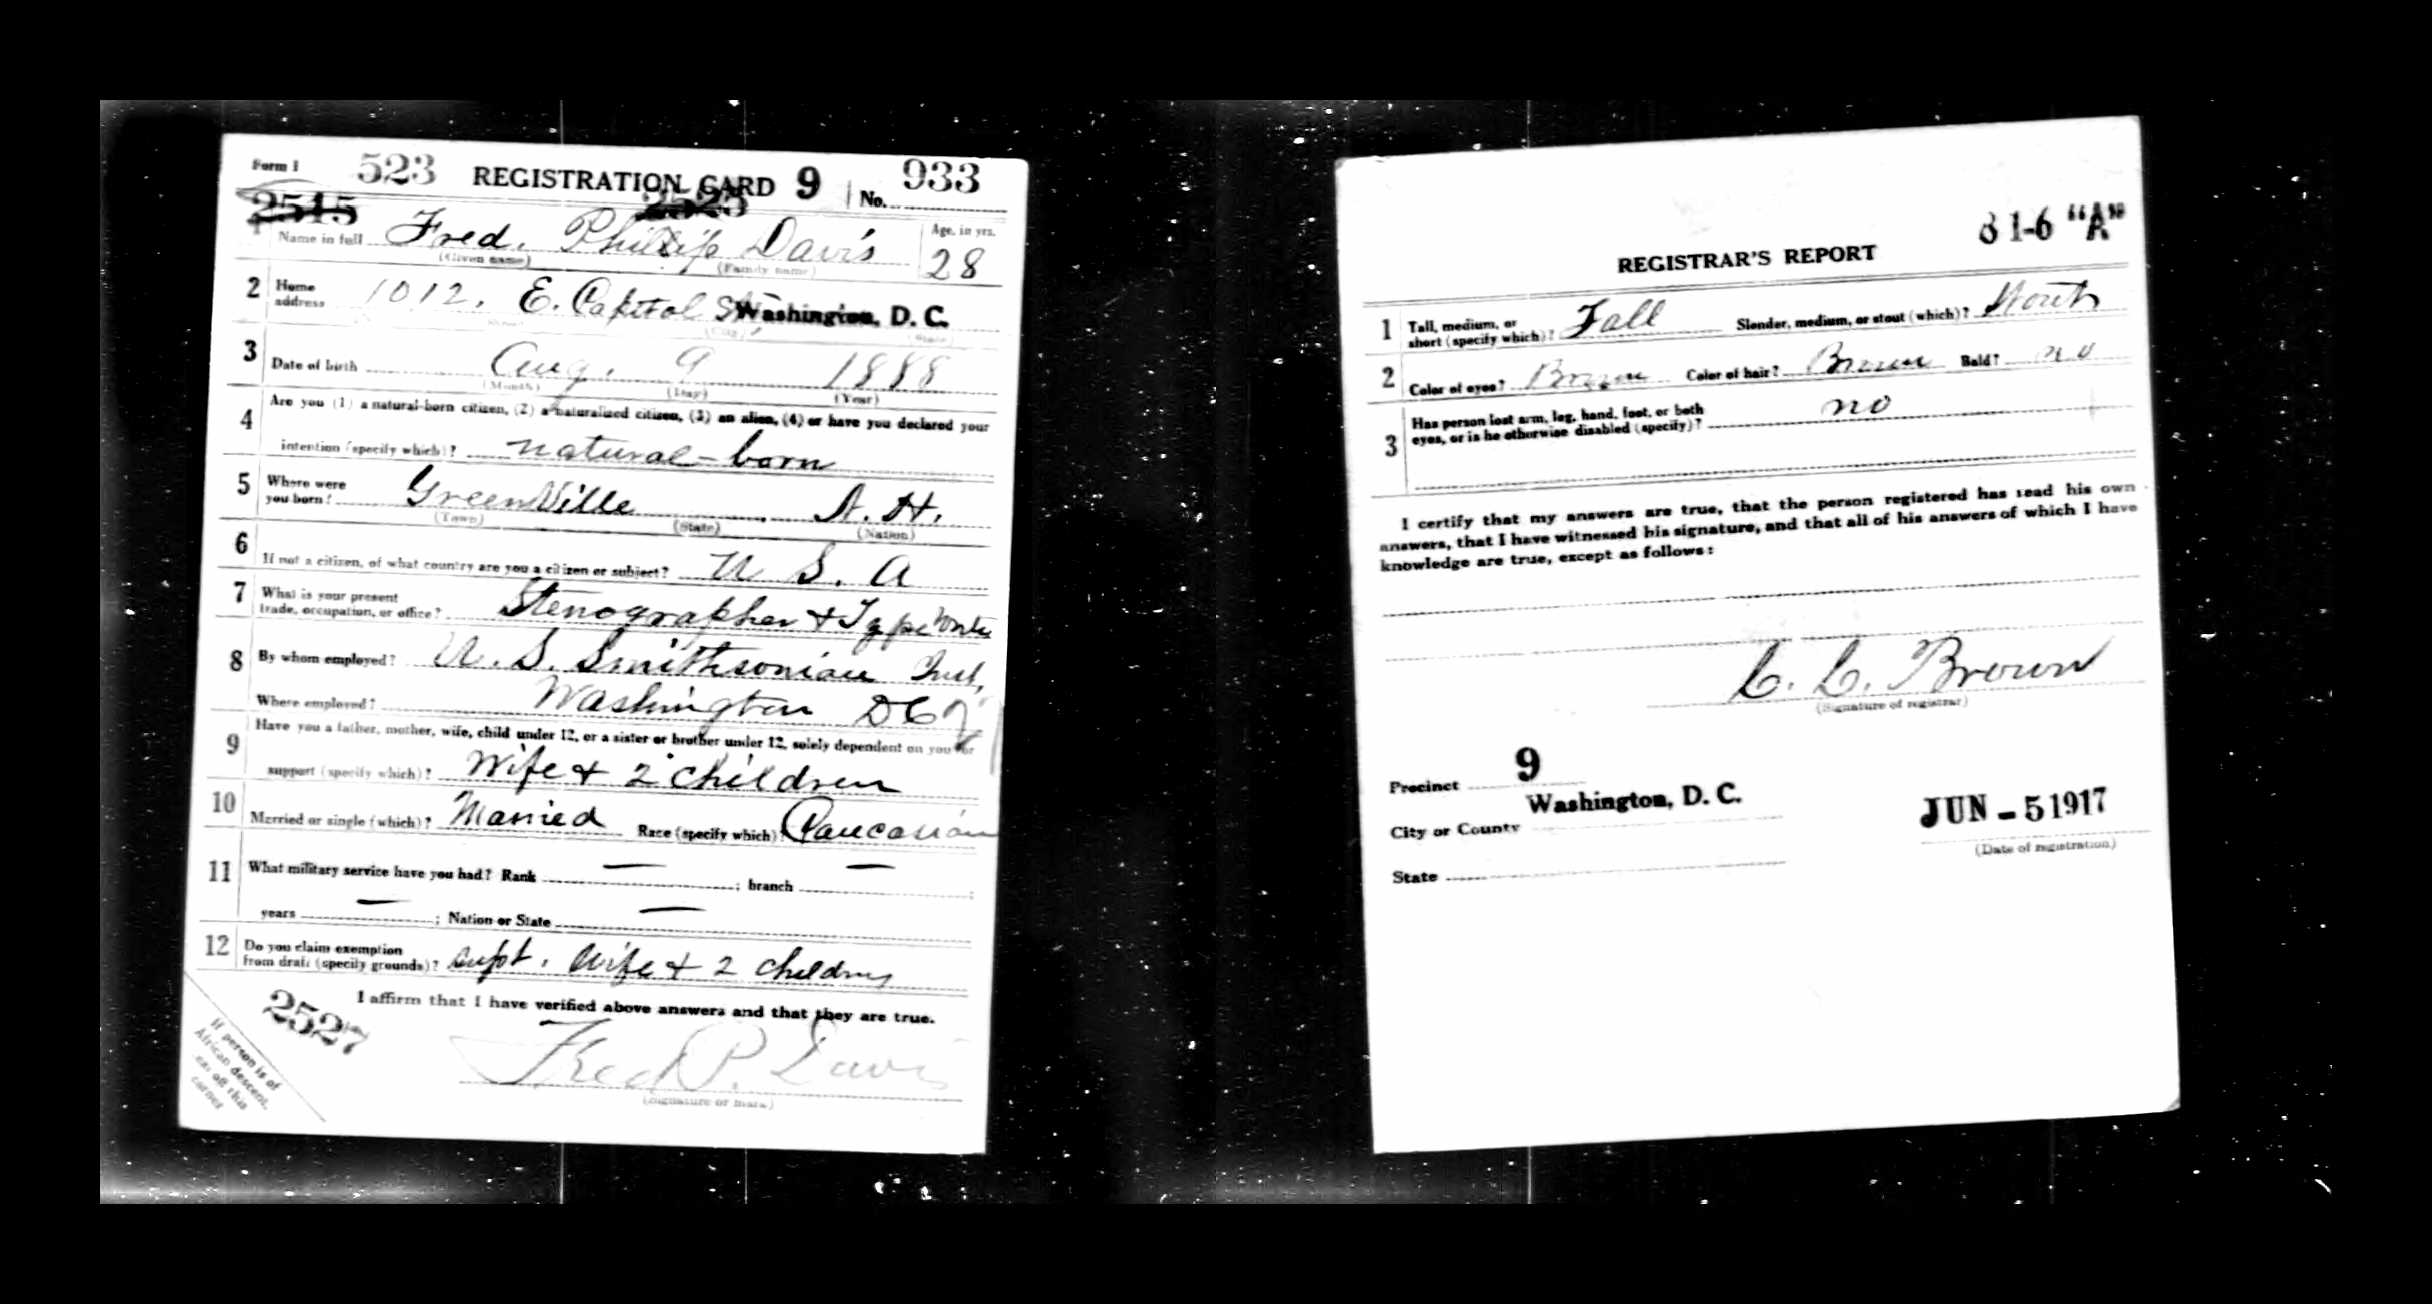 Form 1 523 REGISTRATION CARD 9 No. 933
2515 2525
1 Name in full Fred. Phillip Davis Age, in yrs.
(Given name) (Family name) 28
2 Home address 1012. E. Capitol St Washington, D. C.
3 Date of birth Aug. 9 1888
(Month) (Day) (Year)
4 Are you (1) a natural-born citizen, (2) a naturalized citizen, (3) an alien, (4) or have you declared your
intention (specify which)? natural-born
5 Where were you born? GreenVille N. H.
(Town) (State) (Nation)
6 If not a citizen, of what country are you a citizen or subject? U S. A
7 What is your present trade, occupation, or office? Stenographer + Type Write
8 By whom employed? U. S. Smithsonian Inst,
Where employed? Washington DC
9 Have you a father, mother, wife, child under 12, or a sister or brother under 12, solely dependent on you for
support (specify which)? Wife + 2 children
10 Married or single (which)? Married Race (specify which)? Caucasian
11 What military service have you had? Rank — ; branch — ;
years — ; Nation or State —
12 Do you claim exemption from draft (specify grounds)? supt. Wife + 2 children
I affirm that I have verified above answers and that they are true.
2527
Fred P. Davis
(Signature or mark)
If person is of
African descent,
tear off this
corner
31-6 "A"
REGISTRAR'S REPORT
1 Tall, medium, or short (specify which)? Tall Slender, medium, or stout (which)? Stout
2 Color of eyes? Brown Color of hair? Brown Bald? no
3 Has person lost arm, leg, hand, foot, or both eyes, or is he otherwise disabled (specify)? no
I certify that my answers are true, that the person registered has read his own
answers, that I have witnessed his signature, and that all of his answers of which I have
knowledge are true, except as follows:
C. C. Brown
(Signature of registrar)
Precinct 9
City or County Washington, D. C. JUN - 5 1917
State (Date of registration)